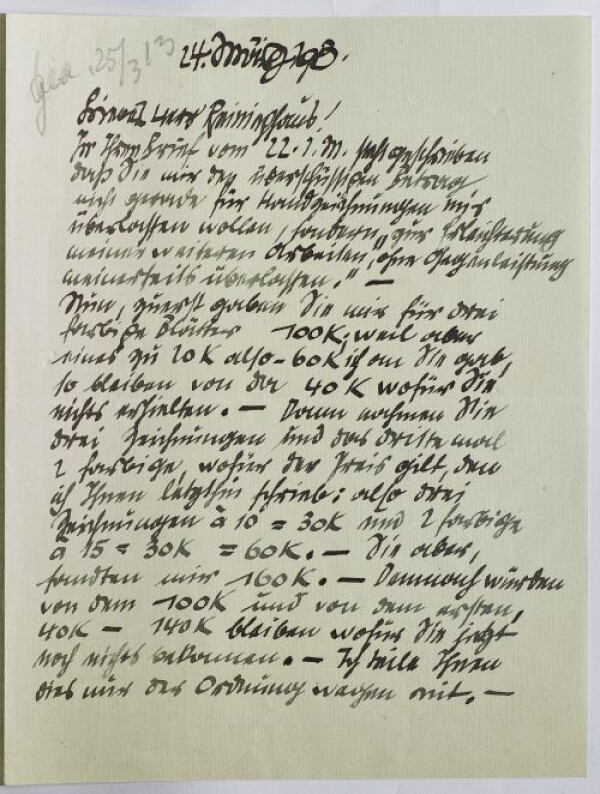 gea. 25/3 13
24. März 1913.
Lieber Herr Reininghaus!
In Ihrem Brief vom 22. d. M. steht geschrieben
daß Sie mir den überschüssigen Betrag
nicht gerade für Handzeichnungen mir
überlassen wollen, sondern, „zur Erleichterung
meiner weiteren Arbeiten", ohne Gegenleistung
meinerseits überlassen." —
Nun, zuerst gaben Sie mir für drei
farbige Blätter 100K, weil aber
eines zu 20K also – 60K ich an Sie gab,
so bleiben von da 40K wofür Sie
nichts erhielten. — Dann nahmen Sie
drei Zeichnungen und das dritte mal
2 farbige, wofür der Preis gilt, den
ich Ihnen letzthin schrieb: also drei
Zeichnungen à 10 = 30K und 2 farbige
à 15 = 30K = 60K. — Sie aber,
sandten mir 160K. — Demnach würden
von dem 100K und von dem ersten,
40K – 140K bleiben wofür Sie jetzt
noch nichts bekamen. — Ich teile Ihnen
dies nur der Ordnung wegen mit. —